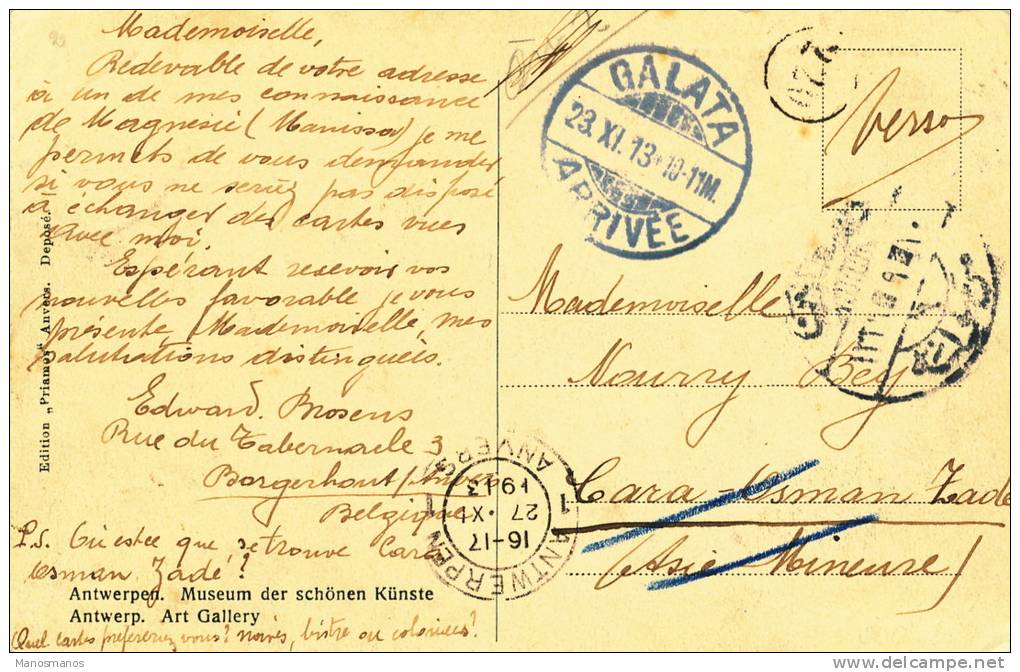 Mademoiselle,
Redevable de votre adresse
à un de mes connaissance
de Magnésie (Manissa) je me
permets de vous demander
si vous ne seriez pas disposé
à échanger des cartes vues
avec moi.
Espérant recevoir vos
nouvelles favorable je vous
présente, Mademoiselle, mes
salutations distingués.
Edward Brosens
Rue du Tabernacle 3
Borgerhout /Anvers
Belgique
P.S. Où est ce que se trouve Cara
Osman Zadé?
Antwerpen. Museum der schönen Künste
Antwerp. Art Gallery
Quel cartes preferez vous? noires, bistre ou coloriées?
Edition „Priamos" Anvers. Deposé.
GALATA
23.XI.13*10-11M.
ARRIVÉE
Verso
Mademoiselle
Nourry Bey
Cara-Osman Zadé
(Asie Mineure)
1 ANVERS 1
1913
27 XI
16-17
ANTWERPEN
Manosmanos
delcampe.net